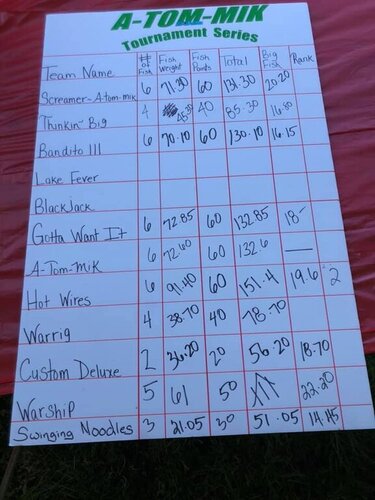 A-TOM-MIK
Tournament Series
Team Name # of Fish Fish Weight Fish Points Total Big Fish Rank
Screamer-A-tom-mik 6 71.30 60 131.30 20.20
Thinkin' Big 4 45.30 40 85.30
Bandito III 6 70.10 60 130.10 16.15
Lake Fever
BlackJack
Gotta Want It 6 72.85 60 132.85 18-
A-Tom-Mik 6 72.60 60 132.6 —
Hot Wires 6 91.40 60 151.4 19.6 2
Warrig 4 38.70 40 78.70
Custom Deluxe 2 36.20 20 56.20 18.70
Warship 5 61 50 111 22.20
Swinging Noodles 3 21.05 30 51.05 14.45